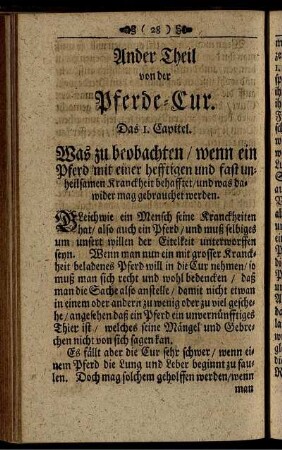 ( 28 )
Ander Theil
von der
Pferde-Cur.
Das 1. Capitel.
Was zu beobachten / wenn ein
Pferd mit einer hefftigen und fast un-
heilsamen Kranckheit behafftet / und was da-
wider mag gebrauchet werden.
GLeich wie ein Mensch seine Kranckheiten
hat / also auch ein Pferd / und muß selbiges
um unsert willen der Eitelkeit unterworffen
seyn. Wenn man nun ein mit grosser Kranck-
heit beladenes Pferd will in die Cur nehmen / so
muß man sich recht und wohl bedencken / daß
man die Sache also anstelle / damit nicht etwan
in einem oder andern zu wenig oder zu viel gesche-
he / angesehen daß ein Pferd ein unvernünfftiges
Thier ist / welches seine Mängel und Gebre-
chen nicht von sich sagen kan.
Es fällt aber die Cur sehr schwer / wenn ei-
nem Pferd die Lung und Leber beginnt zu fau-
len. Doch mag solchem geholffen werden / wenn
man